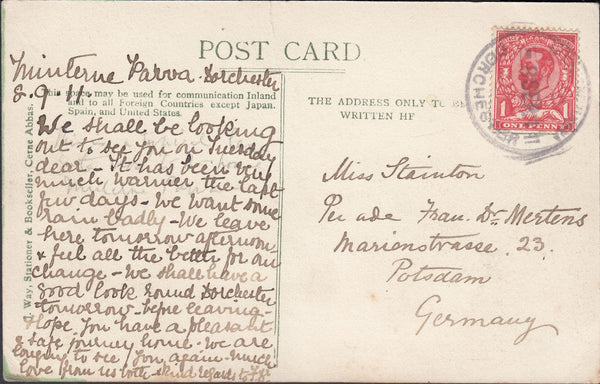 POST CARD
Minterne Parva. Dorchester
8. 9. 11.
This space may be used for communication Inland
and to all Foreign Countries except Japan,
Spain, and United States.
We shall be looking
out to see you on Tuesday
dear - It has been very
much warmer the last
few days - We want some
rain badly - We leave
here tomorrow afternoon
& feel all the better for our
change - We shall have a
good look round Dorchester
tomorrow - before leaving -
Hope you have a pleasant
& safe journey home. We are
longing to see you again. Much
love from us both - Kind regards to
Way, Stationer & Bookseller, Cerne Abbas.
THE ADDRESS ONLY TO BE
WRITTEN HE
DORCHES
1 1
ONE PENNY
Miss Stainton
Per ade Frau. Dr. Mertens
Marienstrasse. 23.
Potsdam
Germany